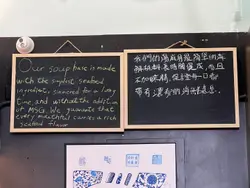 Our soup base is made
with the simplest seafood
ingredients, simmered for a long
time and without the addition
of MSG. We guarantee that
every mouthful carries a rich
seafood flavor.
我們的湯底用最簡單的海
鮮材料長時間熬成，而且
不加味精，保證每一口都
帶有濃香的海味